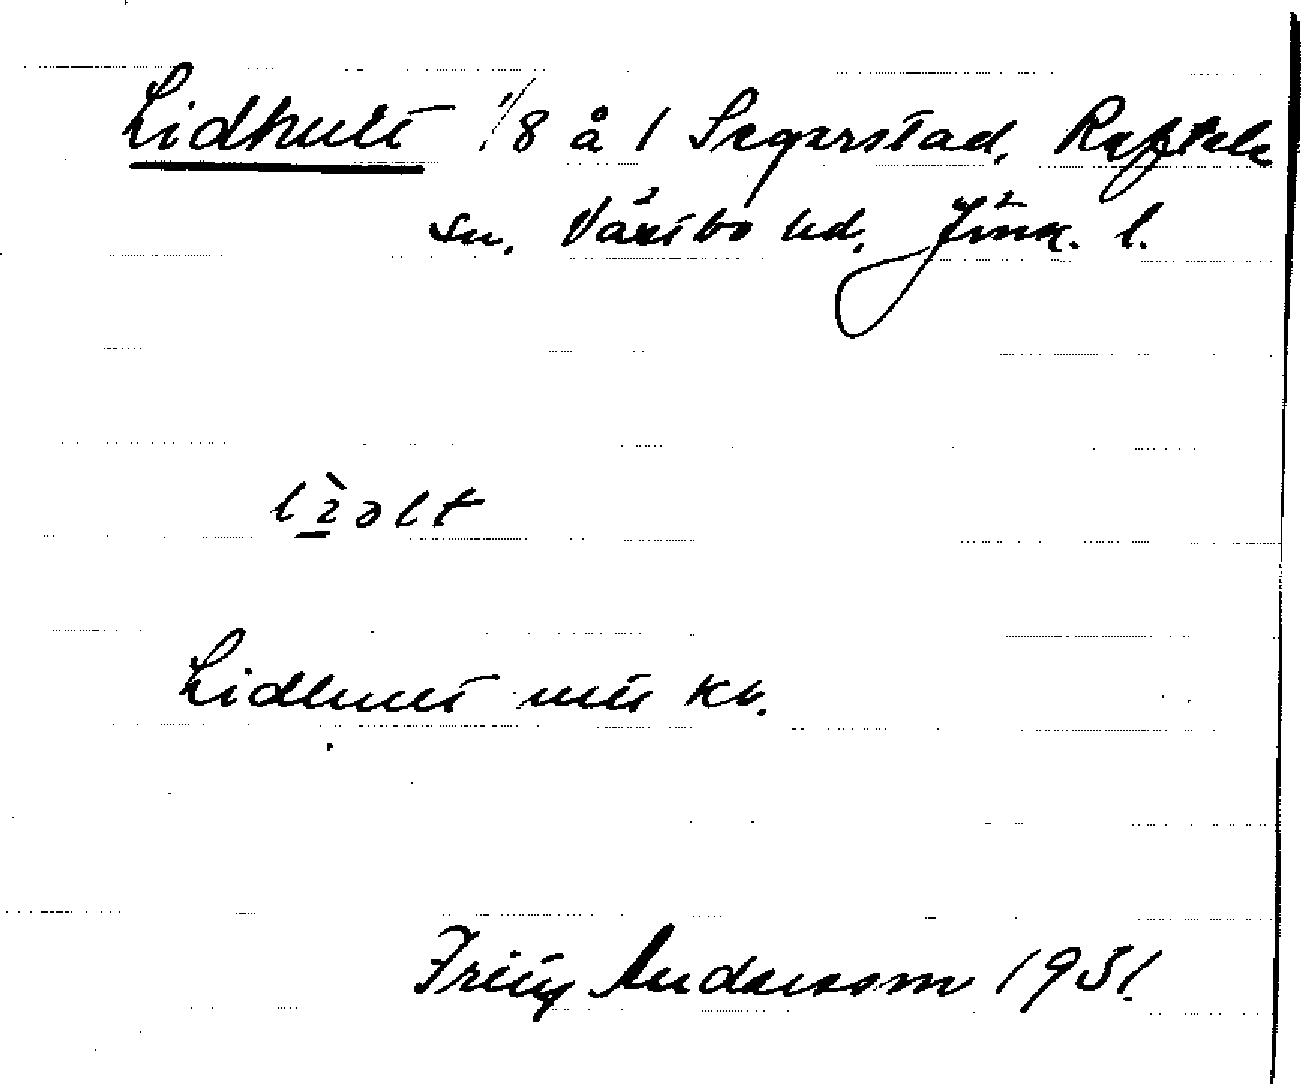 Lidhult 1/8 å 1 Segerstad, Reftele
sn. Västbo hd, Jönk. l.
lìəlt
Lidhult mtl kb.
Fritz Andersson 1951.